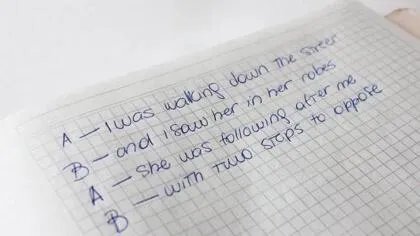 A – I was walking down the street
B – and I saw her in her robes
A – she was following after me
B – with two steps to oppose